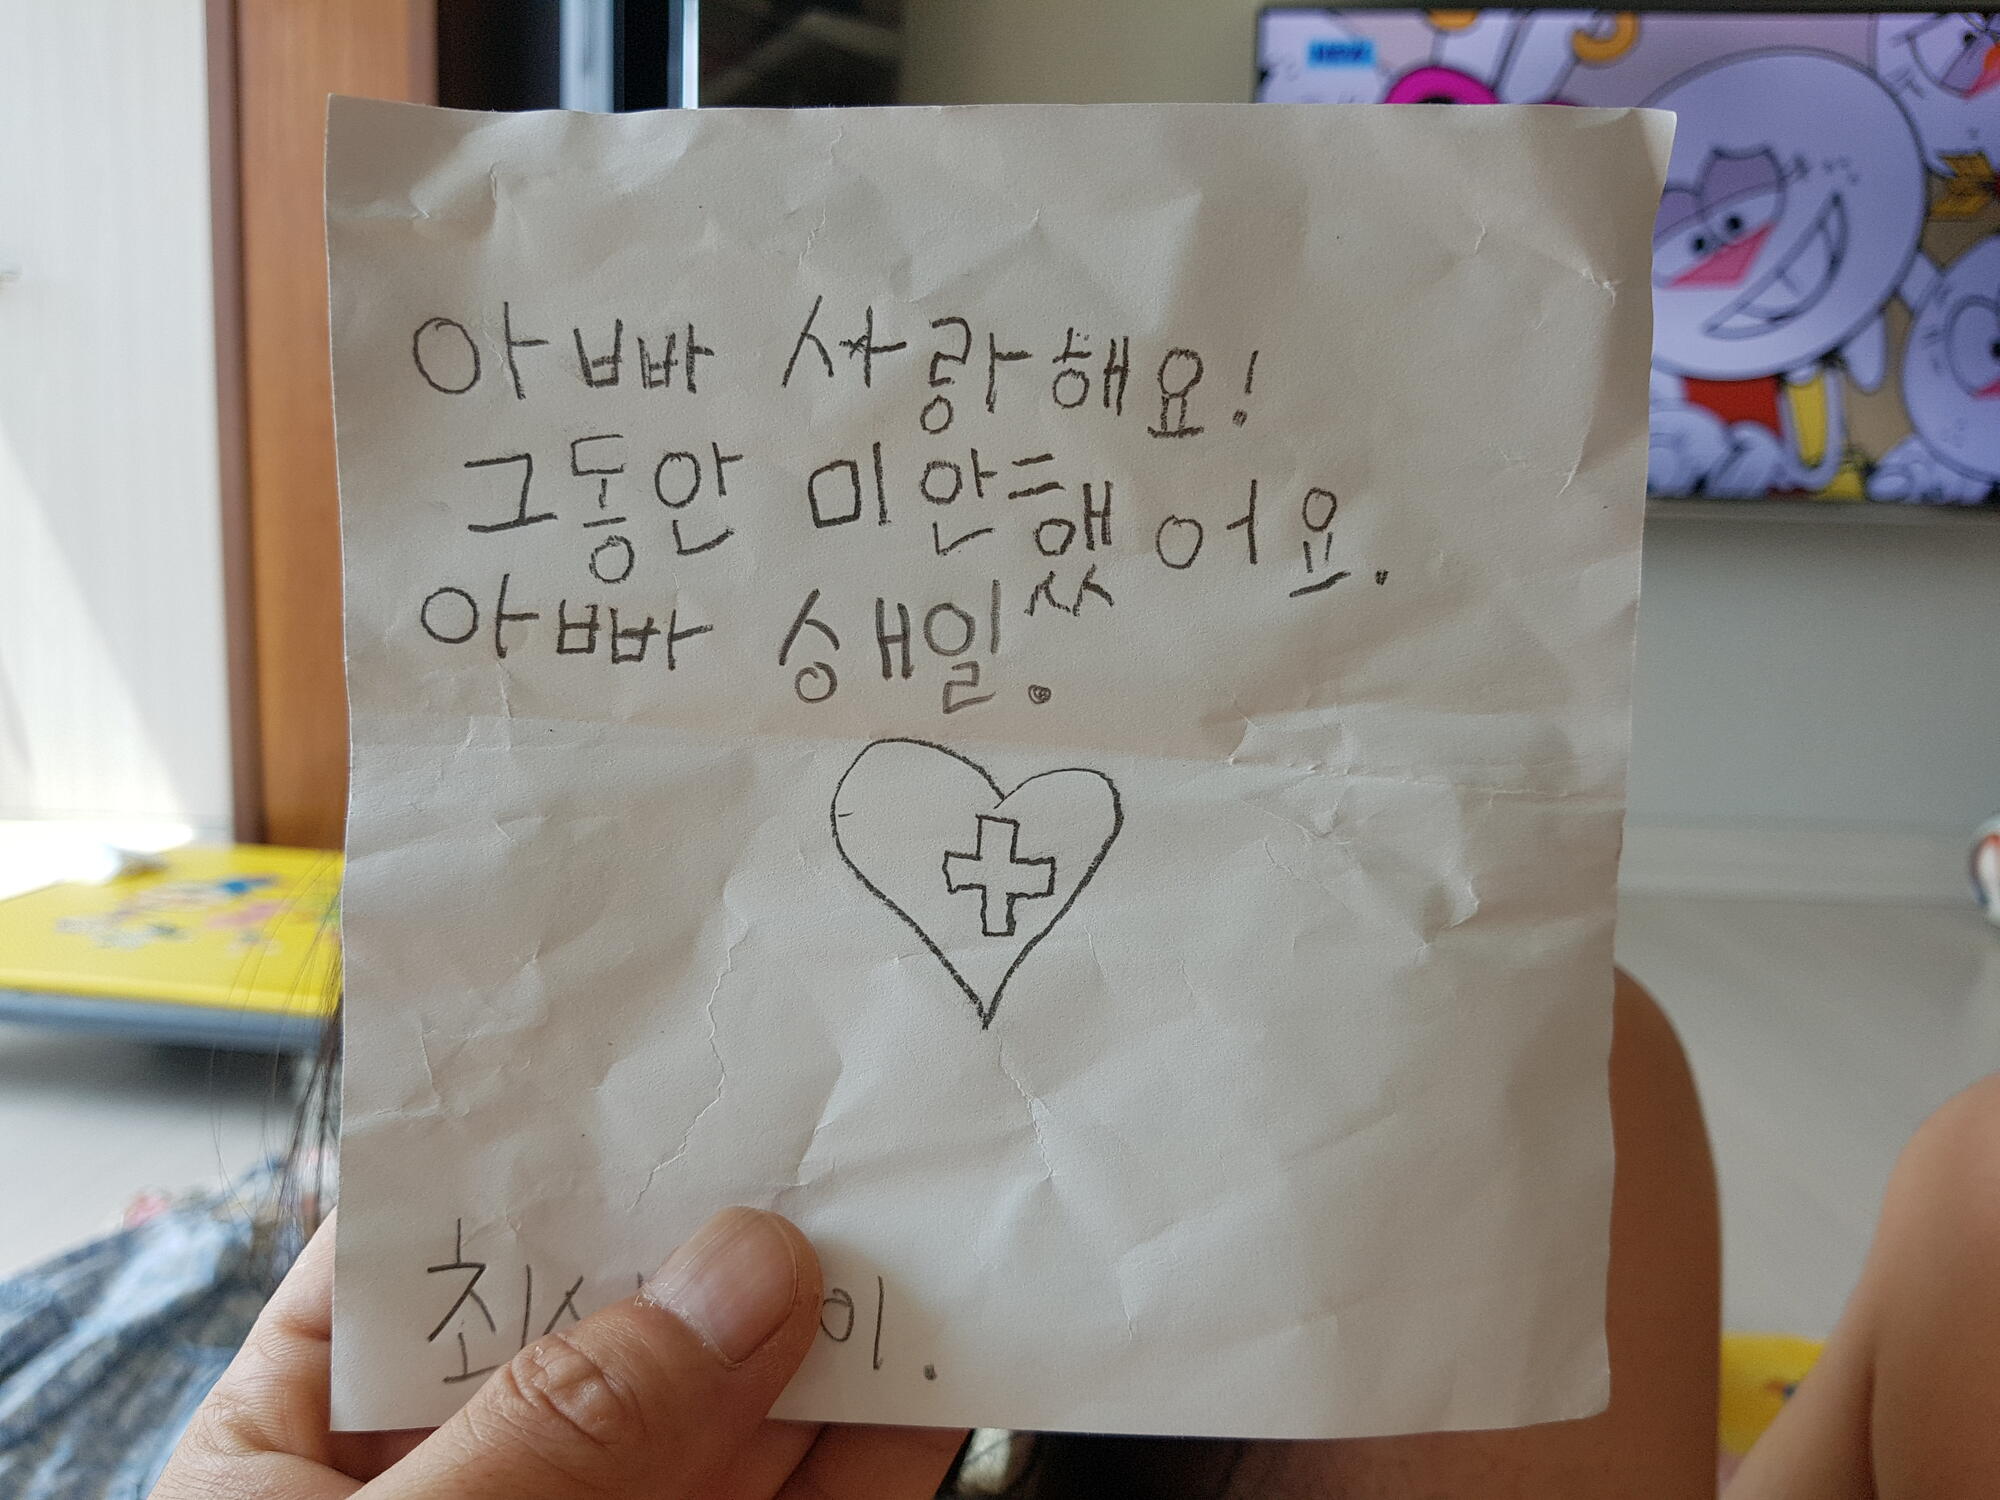 아빠 사랑해요!
그동안 미안했어요.
아빠 생일.